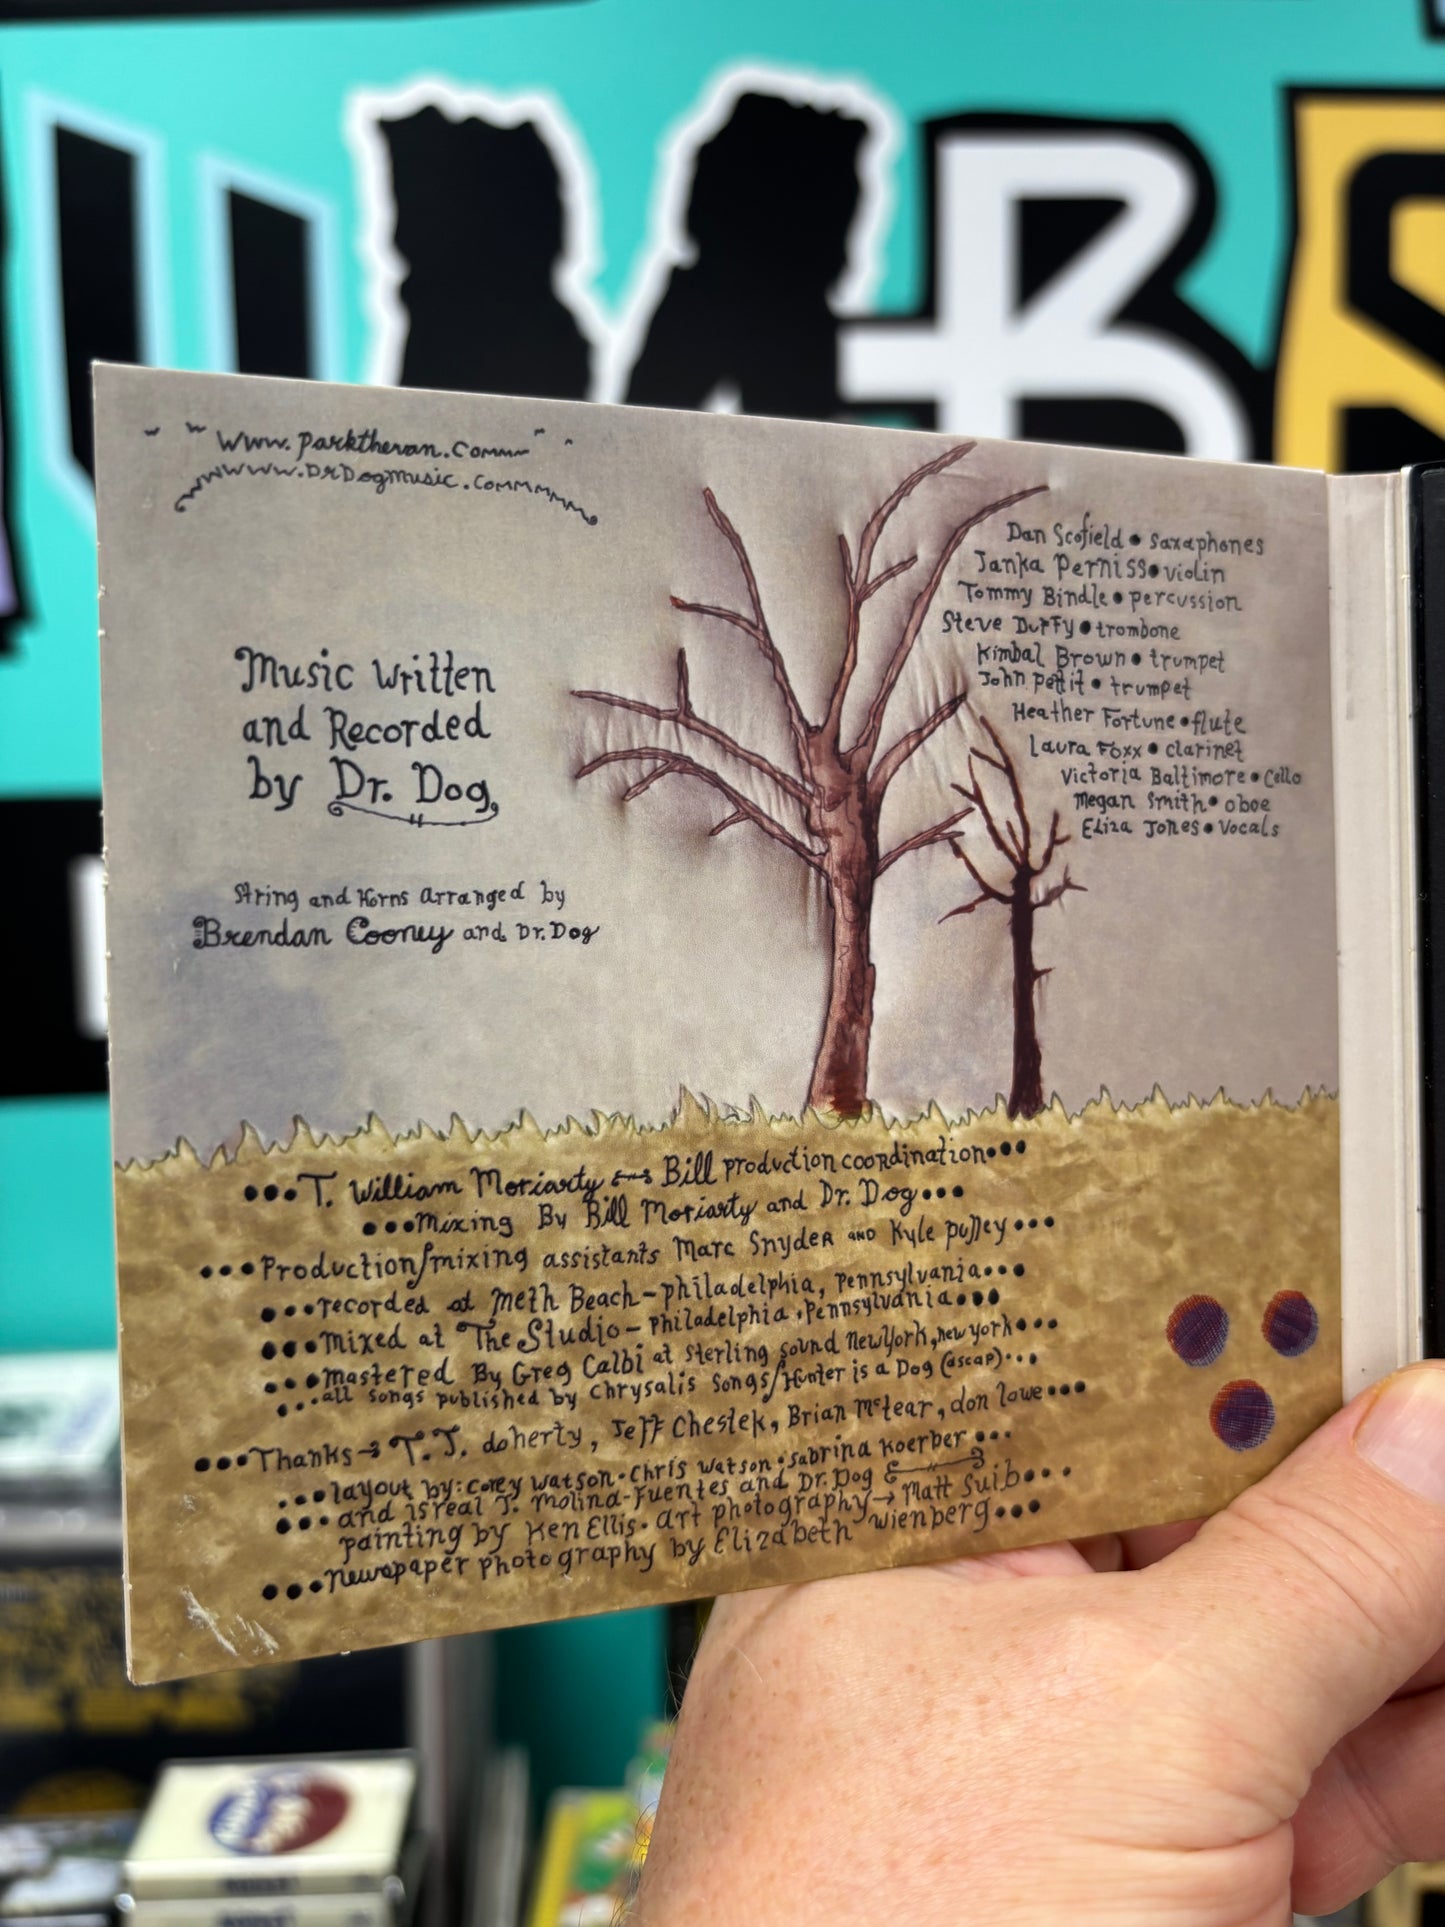 www.parkthevan.commm
www.DrDogmusic.commmmmm
Music Written
and Recorded
by Dr. Dog
String and Horns Arranged by
Brendan Cooney and Dr. Dog
Dan Scofield • saxaphones
Janka Perniss • violin
Tommy Bindle • percussion
Steve Duffy • trombone
Kimbal Brown • trumpet
John Pettit • trumpet
Heather Fortune • flute
Laura Foxx • clarinet
Victoria Baltimore • Cello
Megan Smith • oboe
Eliza Jones • Vocals
•••T. William Moriarty ↔ Bill production coordination•••
•••mixing By Bill Moriarty and Dr. Dog•••
•••Production/mixing assistants Marc Snyder AND Kyle pulley•••
•••recorded at Meth Beach-philadelphia, pennsylvania•••
•••mixed at The Studio-philadelphia, Pennsylvania•••
•••mastered By Greg Calbi at sterling sound New York, new york•••
•••all songs published by Chrysalis Songs/Hunter is a Dog (ascap)•••
•••Thanks→ T.J. doherty, Jeff Chestek, Brian McTear, don lowe•••
•••layout by: Corey Watson • Chris Watson • Sabrina Koerber•••
•••and isreal J. Molina-Fuentes and Dr. Dog
painting by Ken Ellis. art photography→ Matt Suib•••
•••newspaper photography by Elizabeth wienberg•••